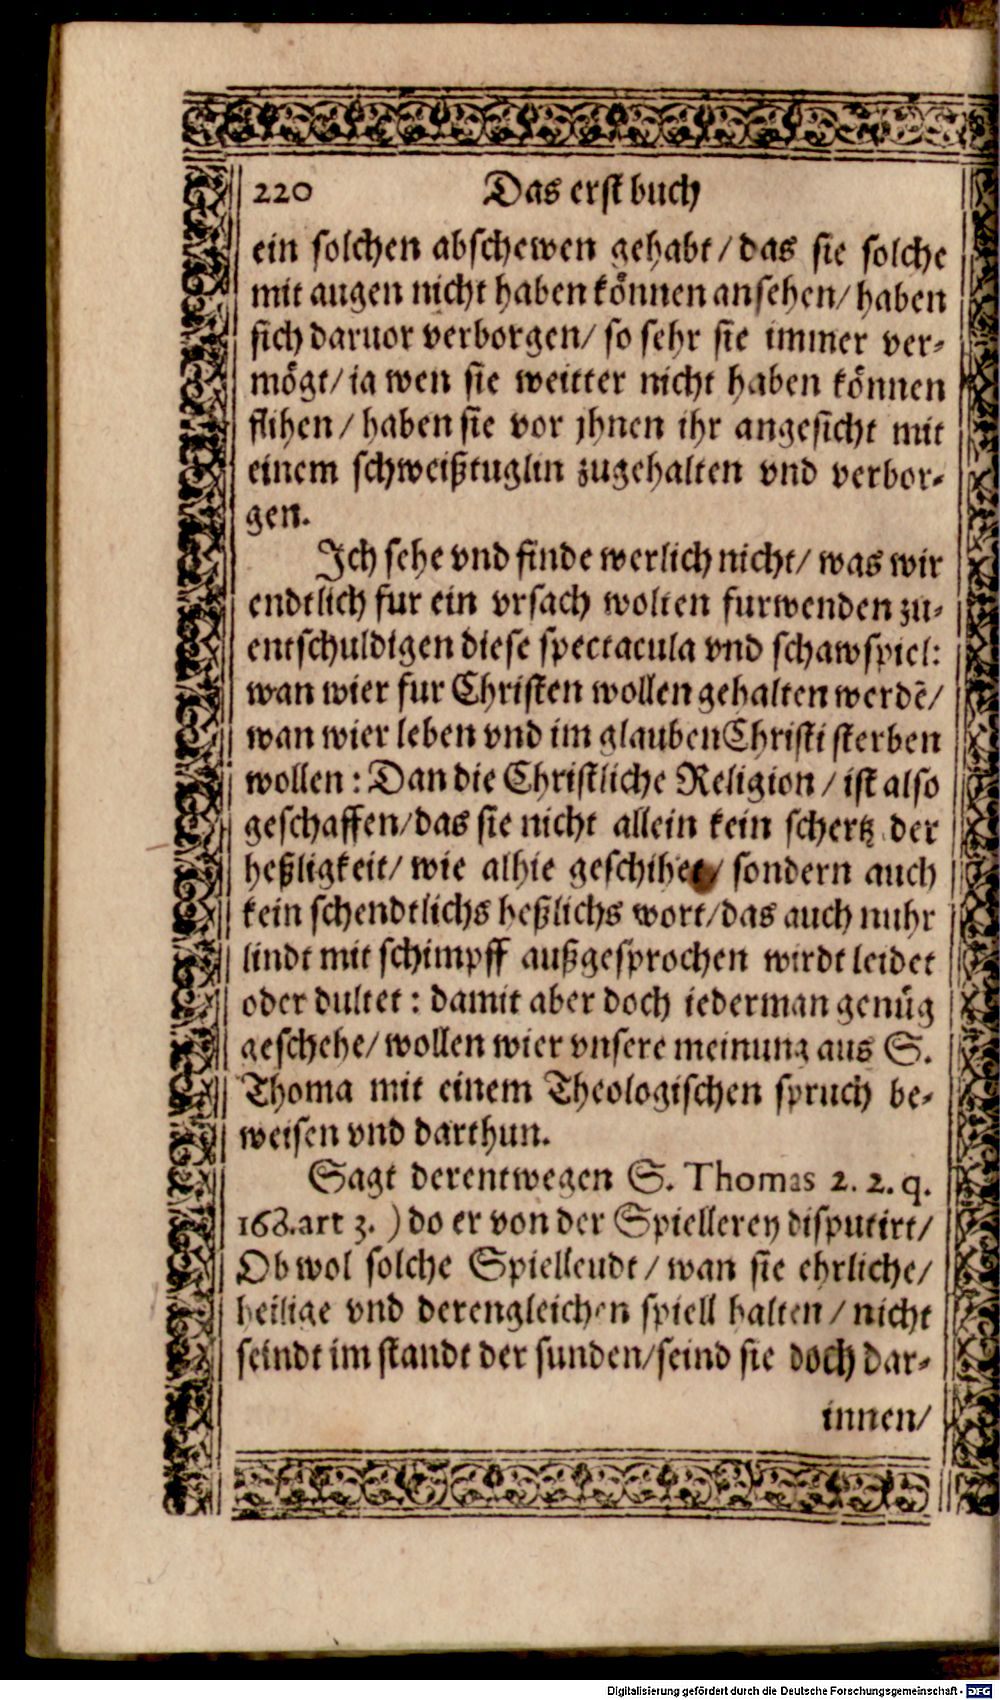 220 Das erst buch
ein solchen abschewen gehabt/ das sie solche
mit augen nicht haben können ansehen/ haben
sich daruor verborgen/ so sehr sie immer ver-
mögt/ ia wen sie weitter nicht haben können
flihen/ haben sie vor jhnen ihr angesicht mit
einem schweißtuglin zugehalten vnd verbor-
gen.
Ich sehe vnd finde werlich nicht/ was wir
endtlich fur ein vrsach wolten furwenden zu-
entschuldigen diese spectacula vnd schawspiel:
wan wier fur Christen wollen gehalten werdẽ/
wan wier leben vnd im glauben Christi sterben
wollen: Dan die Christliche Religion/ ist also
geschaffen/ das sie nicht allein kein schertz der
heßligkeit/ wie alhie geschihet/ sondern auch
kein schendtlichs heßlichs wort/ das auch nuhr
lindt mit schimpff außgesprochen wirdt leidet
oder dultet: damit aber doch iederman genüg
geschehe/ wollen wier vnsere meinung aus S.
Thoma mit einem Theologischen spruch be-
weisen vnd darthun.
Sagt derentwegen S. Thomas 2. 2. q.
168. art 3. ) do er von der Spiellerey disputirt/
Ob wol solche Spielleudt/ wan sie ehrliche/
heilige vnd derengleichen spiell halten/ nicht
seindt im standt der sunden/ seind sie doch dar-
innen/
Digitalisierung gefördert durch die Deutsche Forschungsgemeinschaft - DFG